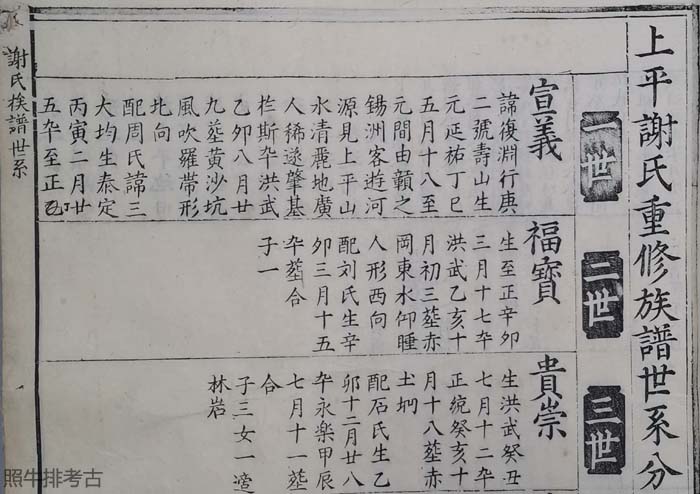 上平謝氏重修族譜世系分
一世
宣義
諱復淵行庚
二號壽山生
元延祐丁巳
五月十八至
元間由贛之
錫洲客遊河
源見上平山
水清麗地廣
人稀遂肇基
扵斯卒洪武
乙卯八月廿
九葬黄沙坑
風吹羅帶形
北向
配周氏諱三
大均生泰定
丙寅二月廿
五卒至正
二世
福寶
生至正辛卯
三月十七卒
洪武乙亥十
月初三葬赤
岡東水仰睡
人形西向
配刘氏生辛
卯三月十五
卒葬合
子一
三世
貴崇
生洪武癸丑
七月十二卒
正統癸亥十
月十八葬赤
土坰
配石氏生乙
卯十二月廿八
卒永楽甲辰
七月十一葬
合
子三女一適
林岩
謝氏族譜世系
照牛排考古